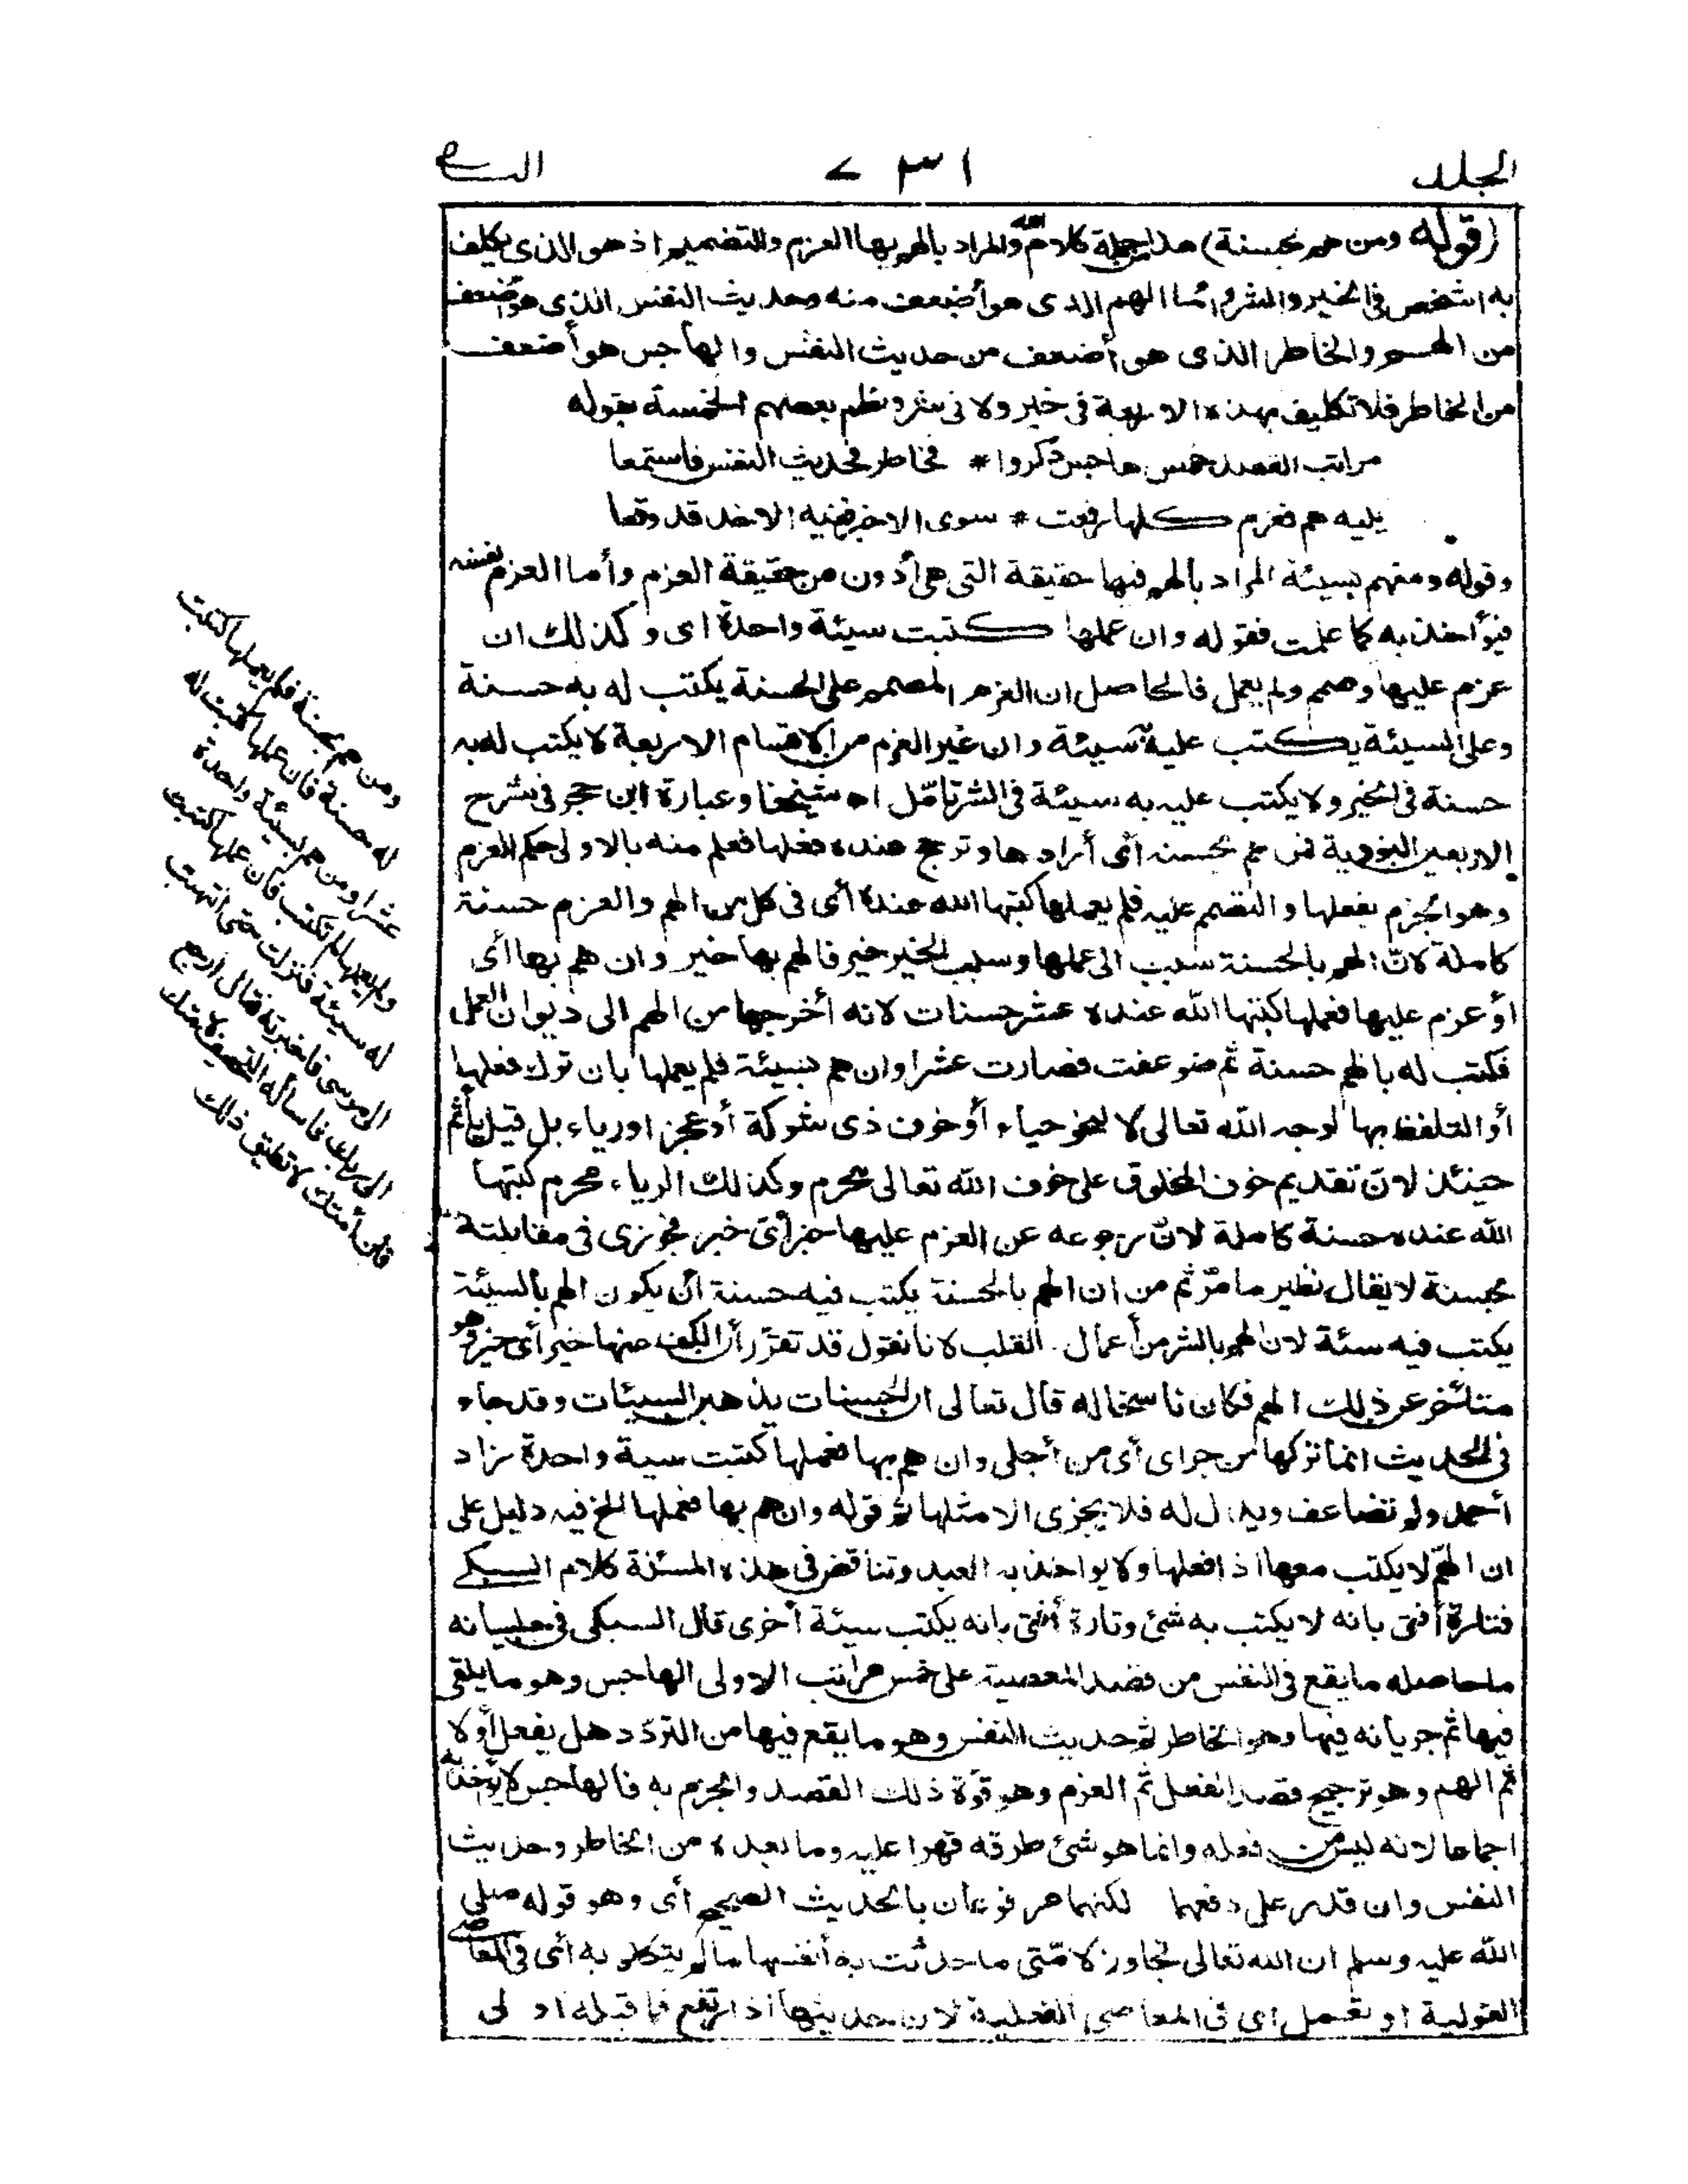 الجلد ٧٣١ التاسع
(قوله ومن هم بحسنة) هذا من جملة كلام الله والمراد بالهم بها العزم والتصميم اذ هو الذى يكلف
به الشخص فى الخير والشر وأما الهم الذى هو أضعف منه وحديث النفس الذى هو أضعف
من الهم والخاطر الذى هو أضعف من حديث النفس والهاجس هو أضعف
من الخاطر فلا تكليف بهذه الاربعة فى خير ولا فى شر ونظم بعضهم الخمسة بقوله
مراتب القصد خمس هاجس ذكروا * فخاطر فحديث النفس فاستمعا
يليه هم فعزم كلها رفعت * سوى الاخير ففيه الاخذ قد وقعا
وقوله ومن هم بسيئة المراد بالهم فيها حقيقة التى هى أدون من حقيقة العزم وأما العزم نفسه
فيؤاخذ به كما علمت فقوله وان عملها كتبت سيئة واحدة اى وكذلك ان
عزم عليها وصمم ولم يعمل فالحاصل ان العزم المصمم على الحسنة يكتب له به حسنة
وعلى السيئة يكتب عليه به سيئة وان غير العزم من الاقسام الاربعة لا يكتب له به
حسنة فى الخير ولا يكتب عليه به سيئة فى الشر تأمّل اه شيخنا وعبارة ابن حجر فى شرح
الاربعين النووية فمن هم بحسنه أى أرادها وترجح عنده فعلها فعلم منه بالاولى حكم العزم
وهو الجزم بفعلها والتصمم عليه فلم يعملها كتبها الله عنده أى فى كل من الهم والعزم حسنة
كاملة لانّ الهم بالحسنة سبب الى عملها وسبب الخير خير فالهم بها خير وان هم بها أى
أو عزم عليها فعملها كتبها الله عنده عشر حسنات لانه أخرجها من الهم الى ديوان العمل
فكتب له بالهم حسنة ثم ضوعفت فصارت عشرا وان هم بسيئة فلم يعملها بان ترك فعلها
أو التلفظ بها لوجه الله تعالى لا لنحو حياء أو خوف ذى شوكة أو عجز او رياء بل قيل يأثم
حينئذ لانّ تقديم خوف المخلوق على خوف الله تعالى محرم وكذلك الرياء محرم كتبها
الله عنده حسنة كاملة لانّ رجوعه عن العزم عليها خير أىّ خير فجوزى فى مقابلته
بحسنة لا يقال نظير ما مرّ ثم من ان الهم بالحسنة يكتب فيه حسنة أن يكون الهم بالسيئة
يكتب فيه سئة لان الهم بالشر من أعمال القلب لانا نقول قد تقرّر أن الكف عنها خير أى خير وهو
متأخر عن ذلك الهم فكان ناسخا له قال تعالى ان الحسنات يذهبن السيئات وقد جاء
فى الحديث انما تركها من جراى أى من أجلى وان هم بها فعملها كتبت سية واحدة زاد
أحمد ولم تضاعف ويدل له فلا يجزى الا مثلها ثم قوله وان هم بها فعملها الخ فيه دليل على
ان الهمّ لا يكتب معها اذ افعلها ولا يواخذ به العبد وتناقض فى هذه المسئلة كلام السبكى
فتارة أفتى بانه لا يكتب به شئ وتارة أفتى بانه يكتب سيئة أخرى قال السبكى فى حلبياته
ما حاصله ما يقع فى النفس من قصد المعصية على خمس مراتب الاولى الهاجس وهو ما يلقى
فيها ثم جريانه فيها وهو الخاطر ثم حديث النفس وهو ما يقع فيها من التردّد هل يفعل أو لا
ثم الهم وهو ترجيح قصد الفعل ثم العزم وهو قوّة ذلك القصد والجزم به فالهاجس لا يؤخذ به
اجماعا لانه ليس من فعله وانما هو شئ طرقه قهرا عليه وما بعده من الخاطر وحديث
النفس وان قدر على دفعهما لكنهما مرفوعان بالحديث الصحيح أى وهو قوله صلى
الله عليه وسلم ان الله تعالى تجاوز لامّتى ما حدثت به أنفسها ما لم يتكلم به أى فى المعاصى
القولية او تعمل اى فى المعاصى الفعلية لان حديثها اذا ارتفع فما قبله اولى
ومن هم بحسنة فلم يعملها كتبت
له حسنة فان عملها كتبت له
عشرا ومن هم بسيئة واحدة
ولم يعملها لم تكتب فان عملها كتبت
له سيئة فنزلت حتى انتهيت
الى موسى فاخبرته فقال ارجع
الى ربك فاسأله التخفيف لامتك
فان أمتك لا تطيق ذلك